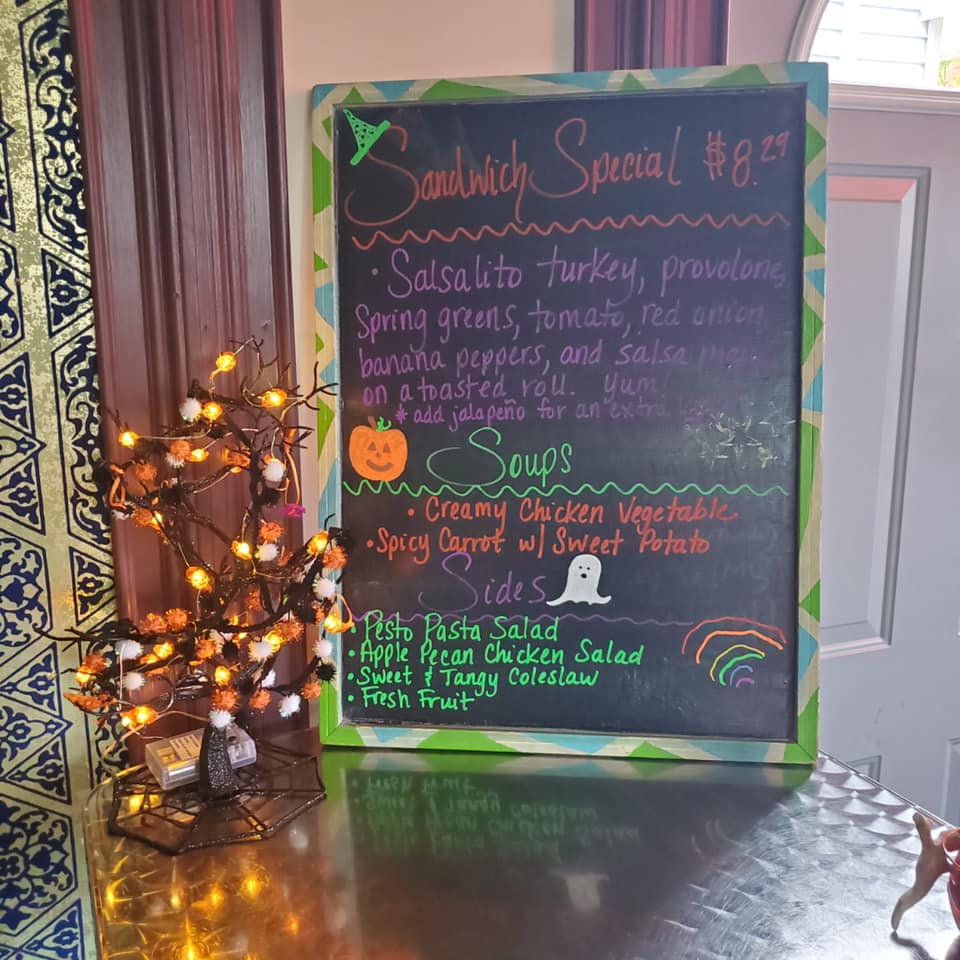 Sandwich Special $8.29
• Salsalito turkey, provolone,
Spring greens, tomato, red onion,
banana peppers, and salsa mayo
on a toasted roll. Yum!
* add jalapeño for an extra
Soups
• Creamy Chicken Vegetable
• Spicy Carrot w/ Sweet Potato
Sides
• Pesto Pasta Salad
• Apple Pecan Chicken Salad
• Sweet & Tangy Coleslaw
• Fresh Fruit